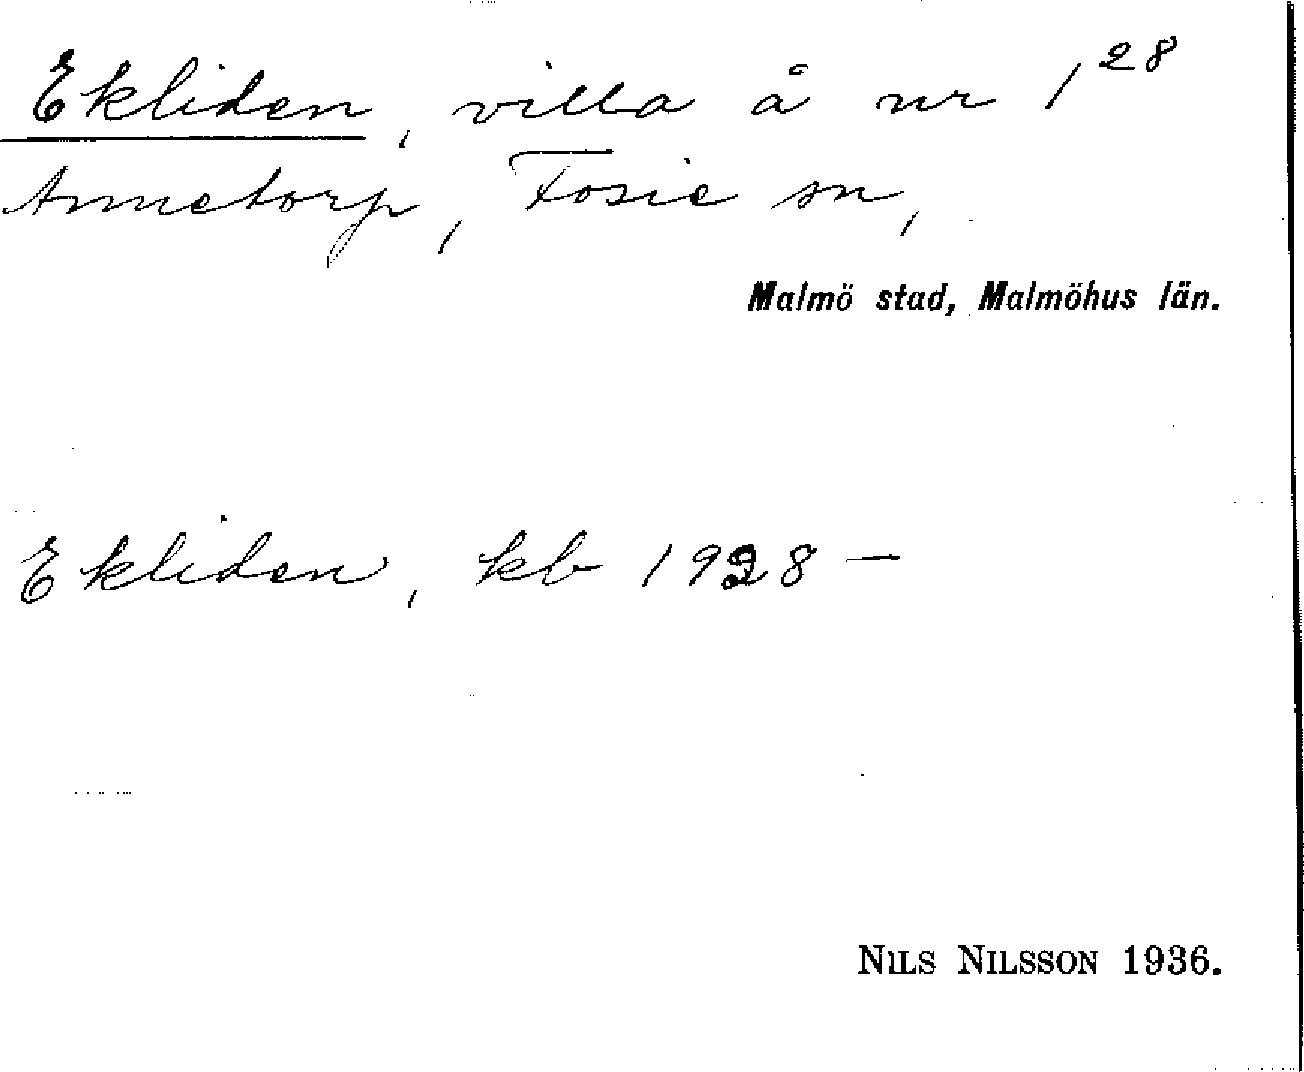 Ekliden, villa å nr 1²⁸
Annetorp, Fosie sn,
Malmö stad, Malmöhus län.
Ekliden, kb 1928 —
NILS NILSSON 1936.